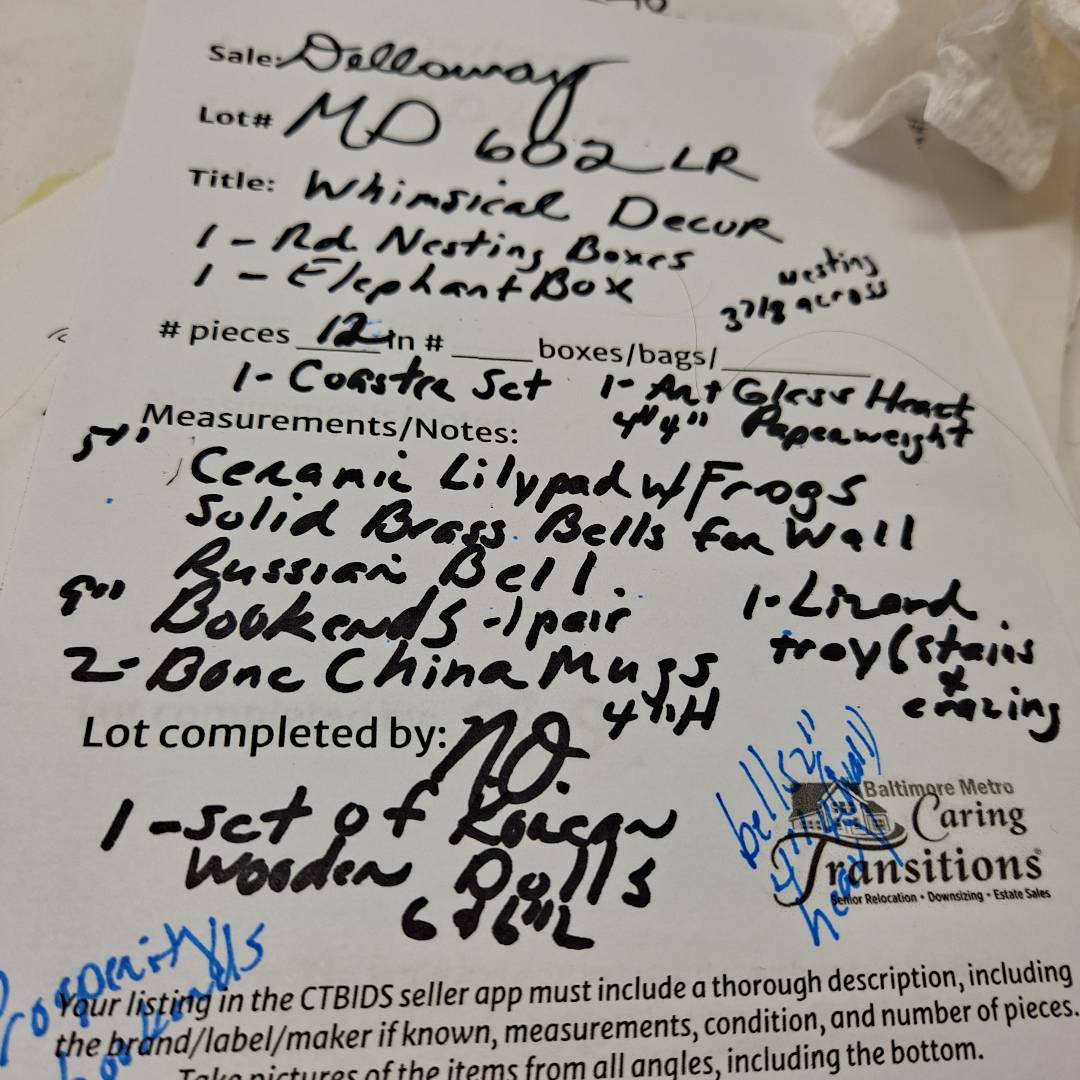 Sale: Delloway
Lot# MD 602 LR
Title: Whimsical Decor
1 - Rd Nesting Boxes
1 - Elephant Box
nesting
3 7/8 across
# pieces 12 in # ____ boxes/bags/____
1- Coaster Set 1- Art Glass Heart
4" 4" Paperweight
Measurements/Notes:
5" Ceramic Lilypad w/ Frogs
Solid Brass Bells for Wall
Russian Bell
9" Bookends - 1 pair
1- Lizard
tray (stains
&
crazing
2- Bone China Mugs
4" H
Lot completed by: N.D.
1 - set of Korean
Wooden Dolls
6 & 6"
bells 2"
4"
Baltimore Metro
Caring
Transitions
Senior Relocation • Downsizing • Estate Sales
Prosperity
Your listing in the CTBIDS seller app must include a thorough description, including
the brand/label/maker if known, measurements, condition, and number of pieces.
Take pictures of the items from all angles, including the bottom.